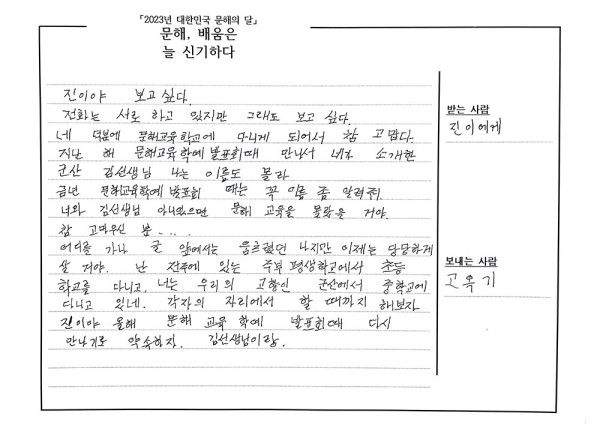 「2023년 대한민국 문해의 달」
문해, 배움은
늘 신기하다
진이야 보고 싶다.
전화는 서로 하고 있지만 그래도 보고 싶다.
네 덕분에 문해교육 학교에 다니게 되어서 참 고맙다.
지난 해 문해교육 학예 발표회때 만나서 네가 소개한
군산 김선생님 나는 이름도 몰라
금년 문해교육학예 발표회 때는 꼭 이름 좀 알려줘.
너와 김선생님 아니었으면 문해 교육을 몰랐을 거야.
참 고마우신 분 ‥‥
어디를 가나 글 앞에서는 움츠렸던 나지만 이제는 당당하게
살 거야. 난 전주에 있는 주부 평생학교에서 초등
학교를 다니고, 너는 우리의 고향인 군산에서 중학교에
다니고 있네. 각자의 자리에서 할 때까지 해보자
진이야 올해 문해 교육 학예 발표회때 다시
만나기로 약속하자. 김선생님이랑.
받는 사람
진이에게
보내는 사람
고옥기